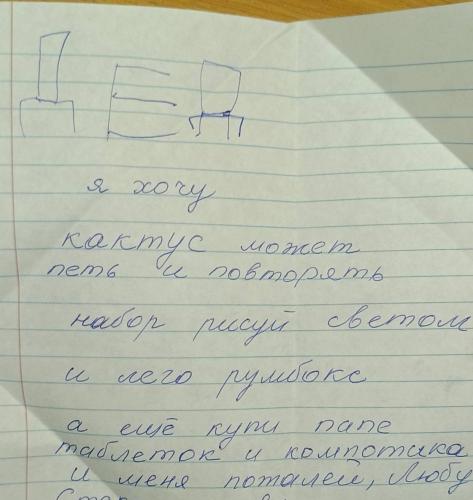 я хочу
кактус может
петь и повторять
набор рисуй светом
и лего румбокс
а ещё купи папе
таблеток и компотика
и меня поталей, Любу